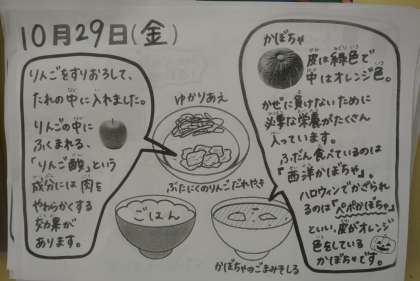 10月29日(金)
りんごをすりおろして、
たれの中に入れました。
りんごの中に
ふくまれる、
「りんご酸」という
成分には肉を
やわらかくする
効果が
あります。
ゆかりあえ
ぶたにくのりんごだれやき
ごはん
かぼちゃのごまみそしる
かぼちゃ
皮は緑色で
中はオレンジ色。
かぜに負けないために
必要な栄養がたくさん
入っています。
ふだん食べているのは
「西洋かぼちゃ」。
ハロウィンでかざられ
るのは「ペポかぼちゃ」
といい、皮がオレンジ
色をしている
かぼちゃです。